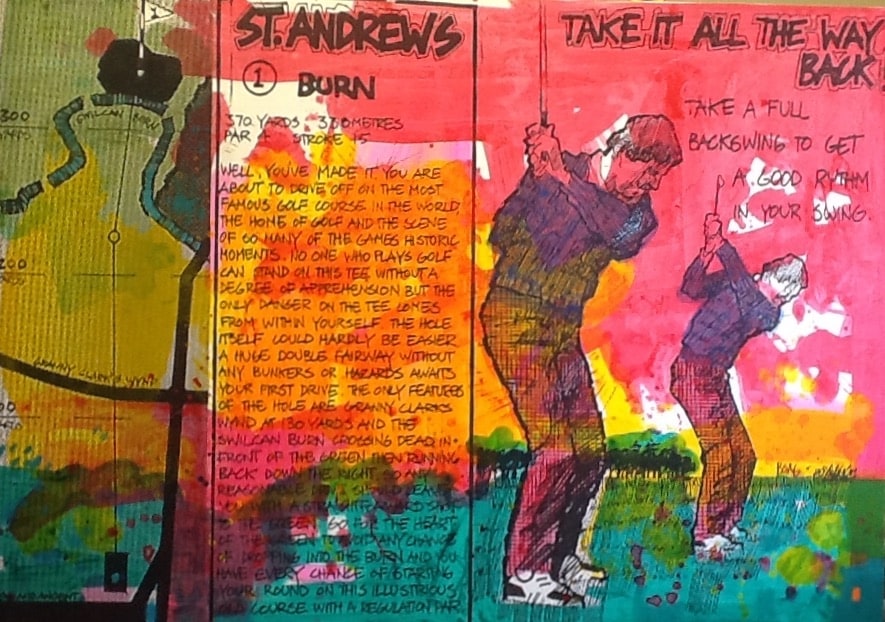 1
300
SWILCAN BURN
200
GRANNY CLARK'S WYND
ST. ANDREWS
1 BURN
370 YARDS 338 METRES
PAR 4 STROKE 15
WELL, YOU'VE MADE IT YOU ARE
ABOUT TO DRIVE OFF ON THE MOST
FAMOUS GOLF COURSE IN THE WORLD,
THE HOME OF GOLF AND THE SCENE
OF SO MANY OF THE GAMES HISTORIC
MOMENTS. NO ONE WHO PLAYS GOLF
CAN STAND ON THIS TEE WITHOUT A
DEGREE OF APPREHENSION BUT THE
ONLY DANGER ON THE TEE COMES
FROM WITHIN YOURSELF. THE HOLE
ITSELF COULD HARDLY BE EASIER
A HUGE DOUBLE FAIRWAY WITHOUT
ANY BUNKERS OR HAZARDS AWAITS
YOUR FIRST DRIVE. THE ONLY FEATURES
OF THE HOLE ARE GRANNY CLARKS
WYND AT 130 YARDS AND THE
SWILCAN BURN CROSSING DEAD IN
FRONT OF THE GREEN THEN RUNNING
BACK DOWN THE RIGHT. SO ANY
REASONABLE DRIVE SHOULD LEAVE
YOU WITH A STRAIGHTFORWARD SHOT
TO THE GREEN. GO FOR THE HEART
OF THE GREEN TO AVOID ANY CHANCE
OF DROPPING INTO THE BURN AND YOU
HAVE EVERY CHANCE OF STARTING
YOUR ROUND ON THIS ILLUSTRIOUS
OLD COURSE WITH A REGULATION PAR.
TAKE IT ALL THE WAY
BACK
TAKE A FULL
BACKSWING TO GET
A GOOD RYTHM
IN YOUR SWING.